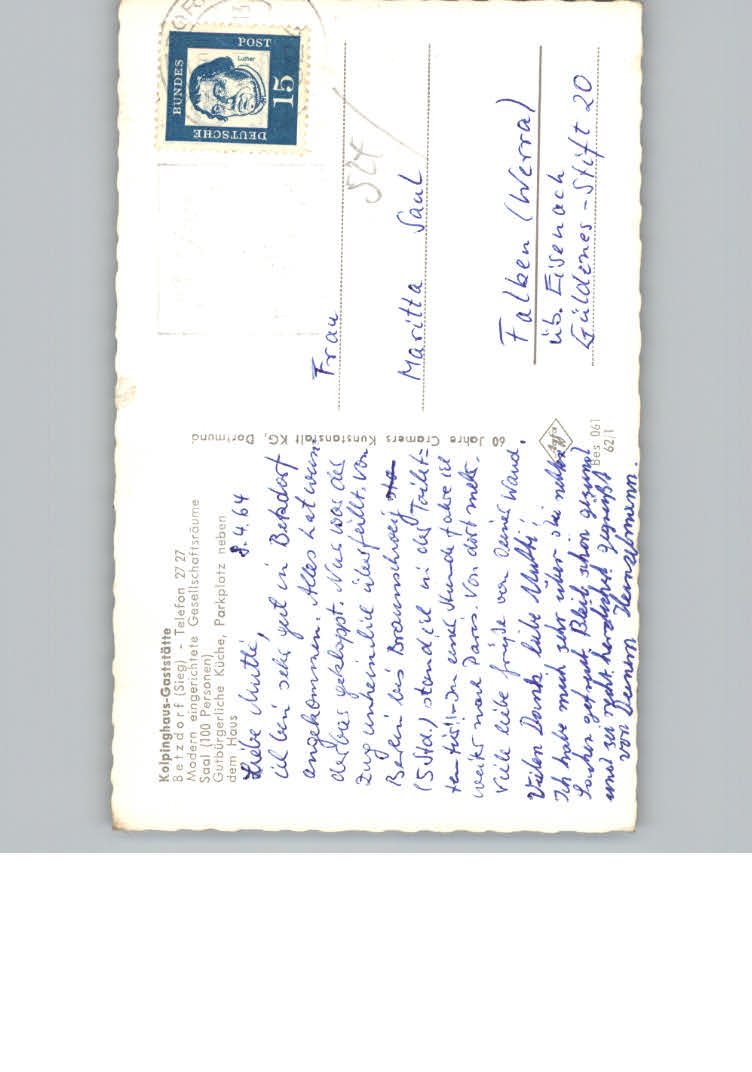 Kolpinghaus-Gaststätte
Betzdorf (Sieg) - Telefon 27 27
Modern eingerichtete Gesellschaftsräume
Saal (100 Personen)
Gutbürgerliche Küche, Parkplatz neben
dem Haus
8.4.64
Liebe Mutti,
ich bin sehr gut in Betzdorf
angekommen. Alles hat wun-
derbar geklappt. Nur war der
Zug unheimlich überfüllt. Von
Berlin bis Braunschweig
(5 Std.) stand ich in der Toilet-
ten-tür!! In einer Stunde fahre ich
weiter nach Paris. Von dort mehr.
Viele liebe Grüße von Deiner Wand.
Vielen Dank liebe Mutti!
Ich habe mich sehr über die netten
Sachen gefreut. Bleib schön gesund
und sei recht herzlichst gegrüßt
von Deinem
60 Jahre Cramers Kunstanstalt KG, Dortmund
Agfa
Bes 061
62/1
DEUTSCHE
BUNDES
POST
Luther
15
524
Frau
Maritta Saul
Falken (Werra)
üb. Eisenach
Güldenes-Stift 20